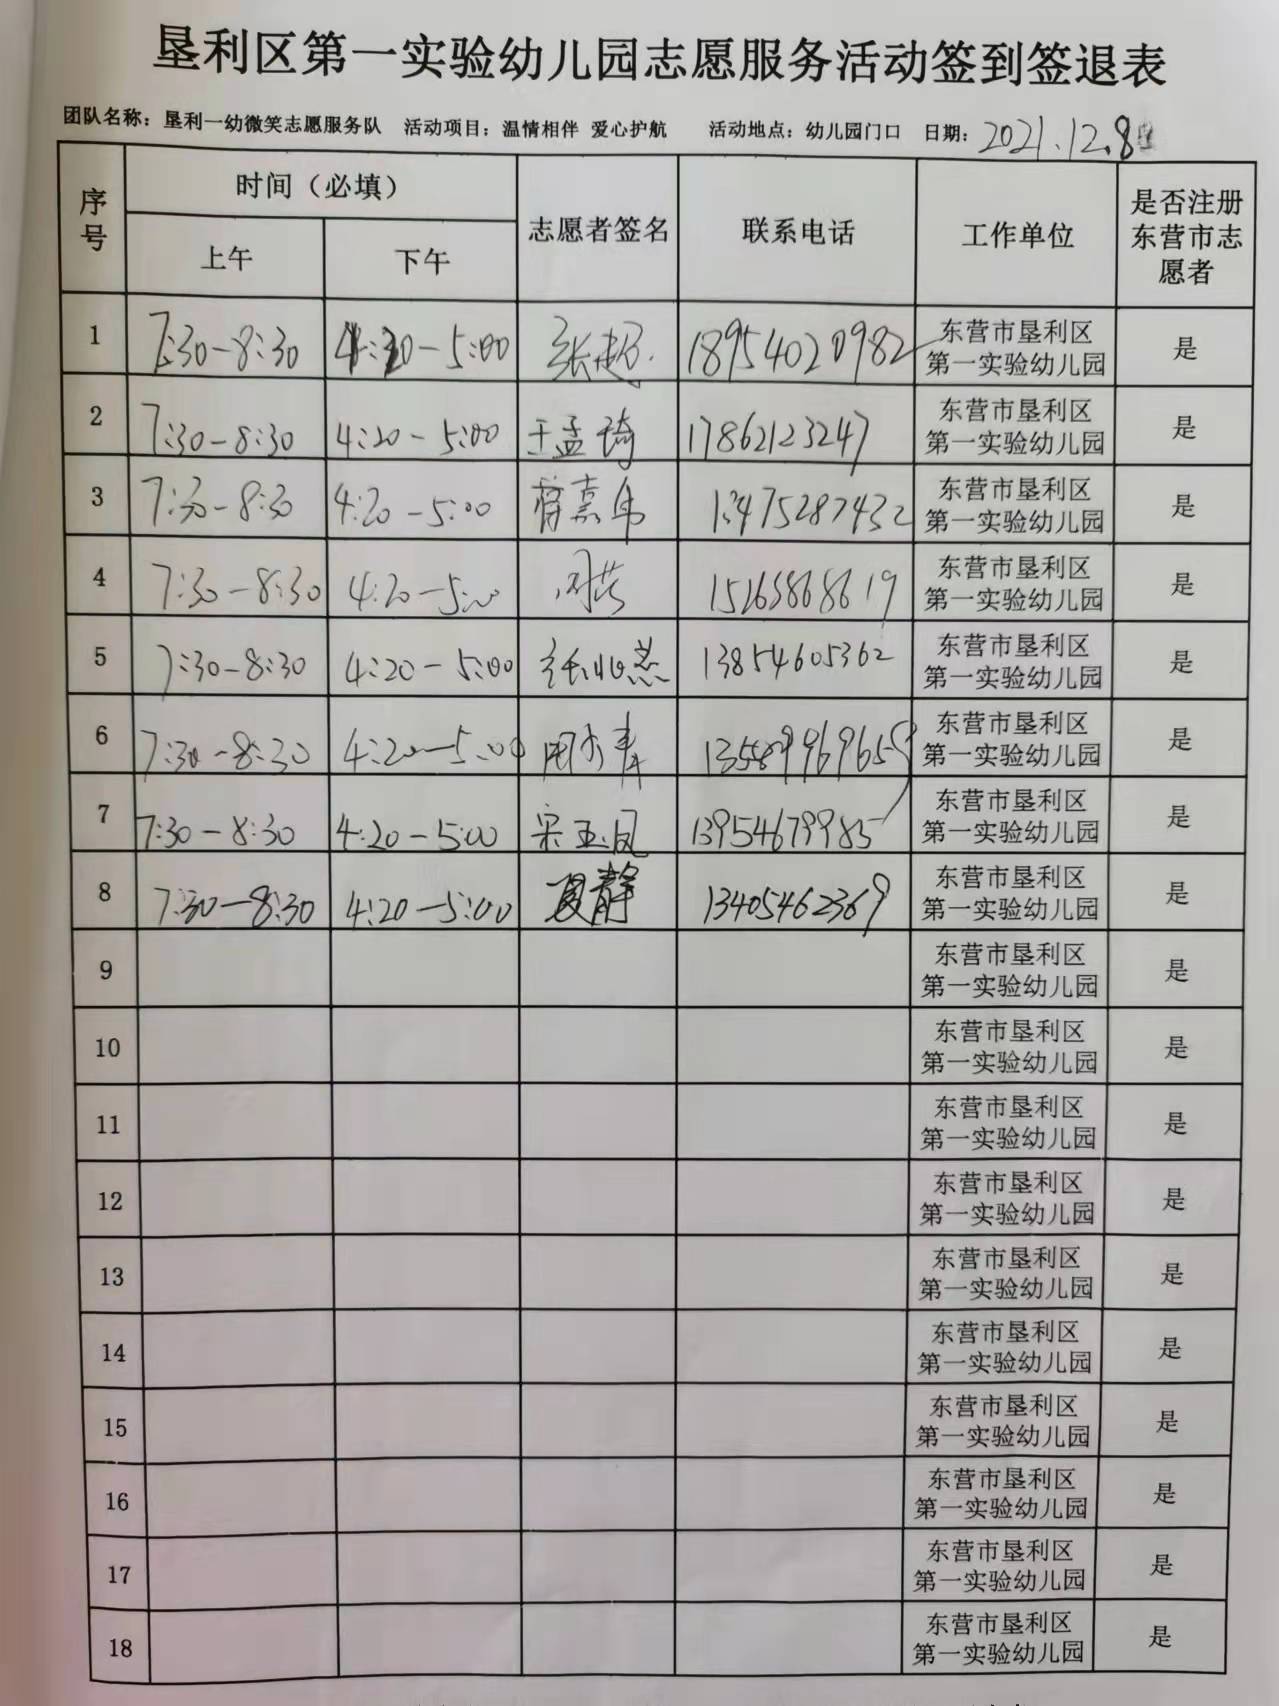 垦利区第一实验幼儿园志愿服务活动签到签退表
团队名称：垦利一幼微笑志愿服务队 活动项目：温情相伴 爱心护航 活动地点：幼儿园门口 日期：2021.12.8
序号 时间（必填） 志愿者签名 联系电话 工作单位 是否注册东营市志愿者
上午 下午
1 7:30-8:30 4:20-5:00 张超 18954020982 东营市垦利区第一实验幼儿园 是
2 7:30-8:30 4:20-5:00 王孟琦 17862123247 东营市垦利区第一实验幼儿园 是
3 7:30-8:30 4:20-5:00 13475287432 东营市垦利区第一实验幼儿园 是
4 7:30-8:30 4:20-5:00 15263868619 东营市垦利区第一实验幼儿园 是
5 7:30-8:30 4:20-5:00 13854605362 东营市垦利区第一实验幼儿园 是
6 7:30-8:30 4:20-5:00 东营市垦利区第一实验幼儿园 是
7 7:30-8:30 4:20-5:00 宋玉凤 13954679985 东营市垦利区第一实验幼儿园 是
8 7:30-8:30 4:20-5:00 夏静 13405462369 东营市垦利区第一实验幼儿园 是
9 东营市垦利区第一实验幼儿园 是
10 东营市垦利区第一实验幼儿园 是
11 东营市垦利区第一实验幼儿园 是
12 东营市垦利区第一实验幼儿园 是
13 东营市垦利区第一实验幼儿园 是
14 东营市垦利区第一实验幼儿园 是
15 东营市垦利区第一实验幼儿园 是
16 东营市垦利区第一实验幼儿园 是
17 东营市垦利区第一实验幼儿园 是
18 东营市垦利区第一实验幼儿园 是